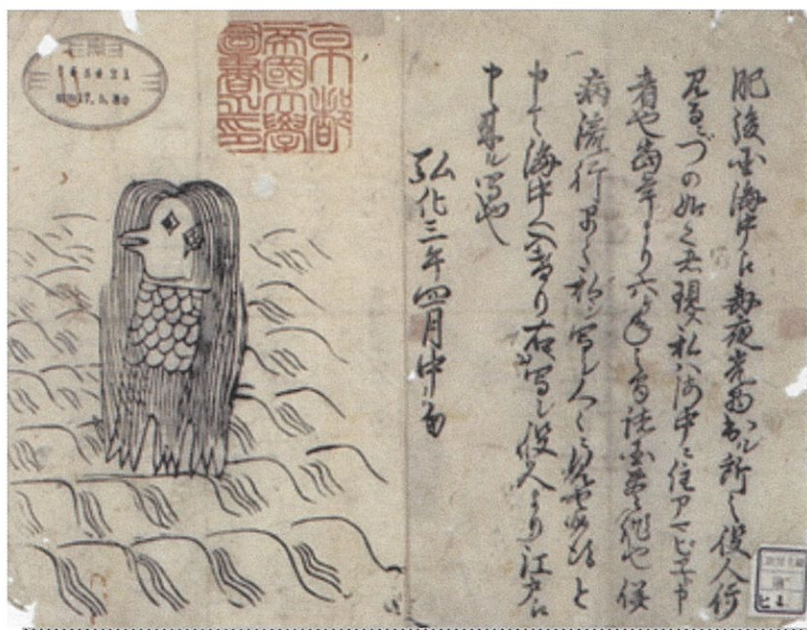 肥後国海中江毎夜光物出ル所之役人行
見るニづの如く者現ス私ハ海中ニ住アマビヱト申
者也当年より六ケ年之間諸国豊作也併
病流行早々私ヲ写シ人々ニ見セ候得と
申て海中へ入けり右写シ役人より江戸江
申来ル写也
弘化三年四月中旬
京都
帝國大學
圖書之印